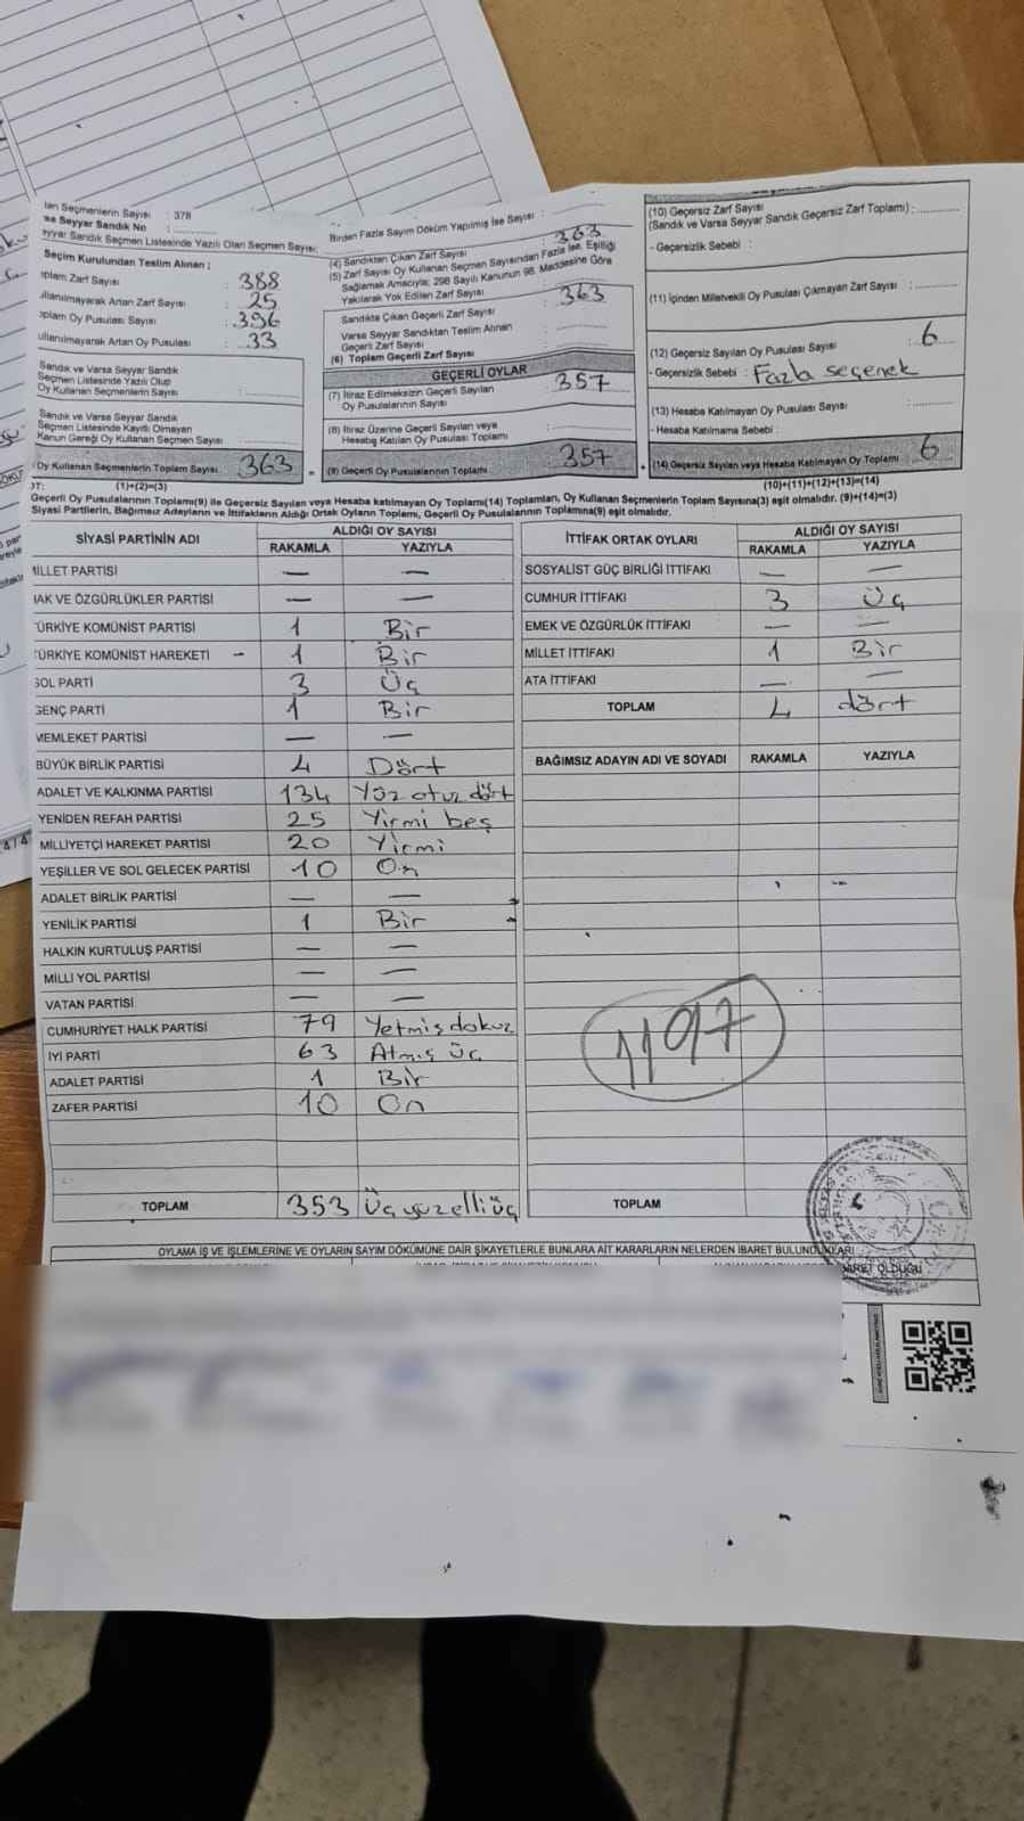 Seçmenlerin Sayısı : 378
Seyyar Sandık No :
Seyyar Sandık Seçmen Listesinde Yazılı Olan Seçmen Sayısı:
Seçim Kurulundan Teslim Alınan :
Zarf Sayısı : 388
Artan Zarf Sayısı : 25
Oy Pusulası Sayısı : 396
Artan Oy Pusulası : 33
Sandık ve Varsa Seyyar Sandık
Seçmen Listesinde Yazılı Olup
Oy Kullanan Seçmenlerin Sayısı :
Sandık ve Varsa Seyyar Sandık
Seçmen Listesinde Kayıtlı Olmayan
Kanun Gereği Oy Kullanan Seçmen Sayısı :
Oy Kullanan Seçmenlerin Toplam Sayısı : 363
(1)+(2)=(3)
Birden Fazla Sayım Döküm Yapılmış İse Sayısı :
(4) Sandıktan Çıkan Zarf Sayısı : 363
(5) Zarf Sayısı Oy Kullanan Seçmen Sayısından Fazla İse, Eşitliği
Sağlamak Amacıyla; 298 Sayılı Kanunun 98. Maddesine Göre
Yakılarak Yok Edilen Zarf Sayısı :
Sandıkta Çıkan Geçerli Zarf Sayısı : 363
Varsa Seyyar Sandıktan Teslim Alınan
Geçerli Zarf Sayısı :
(6) Toplam Geçerli Zarf Sayısı
GEÇERLİ OYLAR
(7) İtiraz Edilmeksizin Geçerli Sayılan
Oy Pusulalarının Sayısı : 357
(8) İtiraz Üzerine Geçerli Sayılan veya
Hesaba Katılan Oy Pusulası Toplamı :
(9) Geçerli Oy Pusulalarının Toplamı : 357
(10) Geçersiz Zarf Sayısı
(Sandık ve Varsa Seyyar Sandık Geçersiz Zarf Toplamı) :
- Geçersizlik Sebebi :
(11) İçinden Milletvekili Oy Pusulası Çıkmayan Zarf Sayısı :
(12) Geçersiz Sayılan Oy Pusulası Sayısı : 6
- Geçersizlik Sebebi : Fazla seçenek
(13) Hesaba Katılmayan Oy Pusulası Sayısı :
- Hesaba Katılmama Sebebi :
(14) Geçersiz Sayılan veya Hesaba Katılmayan Oy Toplamı : 6
(10)+(11)+(12)+(13)=(14)
Geçerli Oy Pusulalarının Toplamı(9) ile Geçersiz Sayılan veya Hesaba katılmayan Oy Toplamı(14) Toplamları, Oy Kullanan Seçmenlerin Toplam Sayısına(3) eşit olmalıdır. (9)+(14)=(3)
Siyasi Partilerin, Bağımsız Adayların ve İttifakların Aldığı Ortak Oyların Toplamı, Geçerli Oy Pusulalarının Toplamına(9) eşit olmalıdır.
SİYASİ PARTİNİN ADI ALDIĞI OY SAYISI
RAKAMLA YAZIYLA
MİLLET PARTİSİ — —
HAK VE ÖZGÜRLÜKLER PARTİSİ — —
TÜRKİYE KOMÜNİST PARTİSİ 1 Bir
TÜRKİYE KOMÜNİST HAREKETİ 1 Bir
SOL PARTİ 3 Üç
GENÇ PARTİ 1 Bir
MEMLEKET PARTİSİ — —
BÜYÜK BİRLİK PARTİSİ 4 Dört
ADALET VE KALKINMA PARTİSİ 134 Yüz otuz dört
YENİDEN REFAH PARTİSİ 25 Yirmi beş
MİLLİYETÇİ HAREKET PARTİSİ 20 Yirmi
YEŞİLLER VE SOL GELECEK PARTİSİ 10 On
ADALET BİRLİK PARTİSİ — —
YENİLİK PARTİSİ 1 Bir
HALKIN KURTULUŞ PARTİSİ — —
MİLLİ YOL PARTİSİ — —
VATAN PARTİSİ — —
CUMHURİYET HALK PARTİSİ 79 Yetmiş dokuz
İYİ PARTİ 63 Atmış üç
ADALET PARTİSİ 1 Bir
ZAFER PARTİSİ 10 On
TOPLAM 353 Üç yüz elli üç
İTTİFAK ORTAK OYLARI ALDIĞI OY SAYISI
RAKAMLA YAZIYLA
SOSYALİST GÜÇ BİRLİĞİ İTTİFAKI — —
CUMHUR İTTİFAKI 3 Üç
EMEK VE ÖZGÜRLÜK İTTİFAKI — —
MİLLET İTTİFAKI 1 Bir
ATA İTTİFAKI — —
TOPLAM 4 dört
BAĞIMSIZ ADAYIN ADI VE SOYADI RAKAMLA YAZIYLA
1197
TOPLAM
OYLAMA İŞ VE İŞLEMLERİNE VE OYLARIN SAYIM DÖKÜMÜNE DAİR ŞİKAYETLERLE BUNLARA AİT KARARLARIN NELERDEN İBARET BULUNDUKLARI